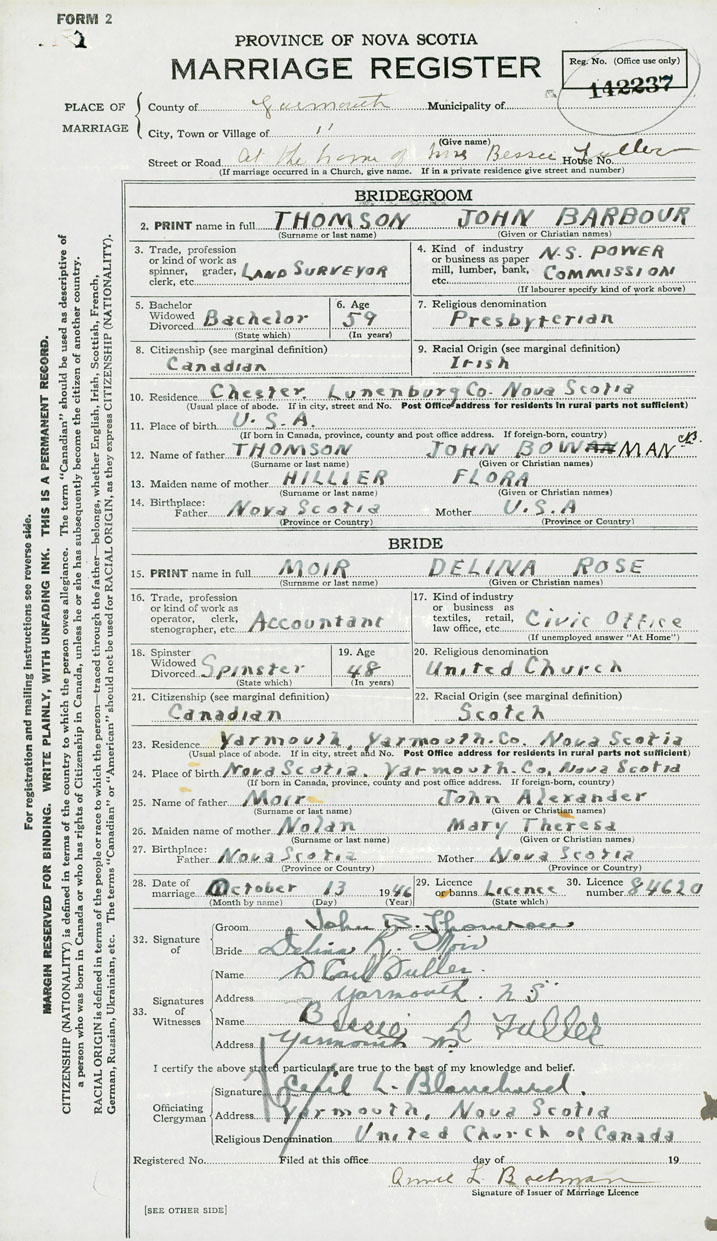 FORM 2
PROVINCE OF NOVA SCOTIA
MARRIAGE REGISTER
Reg. No. (Office use only)
142237
PLACE OF MARRIAGE
County of Yarmouth Municipality of
City, Town or Village of "
(Give name)
Street or Road At the home of Mrs Bessie Fuller House No.
(If marriage occurred in a Church, give name. If in a private residence give street and number)
BRIDEGROOM
2. PRINT name in full THOMSON JOHN BARBOUR
(Surname or last name) (Given or Christian names)
3. Trade, profession or kind of work as spinner, grader, clerk, etc. LAND SURVEYOR
4. Kind of industry or business as paper mill, lumber, bank, etc. N.S. POWER COMMISSION
(If labourer specify kind of work above)
5. Bachelor Widowed Divorced Bachelor
(State which)
6. Age 59
(In years)
7. Religious denomination
Presbyterian
8. Citizenship (see marginal definition)
Canadian
9. Racial Origin (see marginal definition)
Irish
10. Residence Chester, Lunenburg Co. Nova Scotia
(Usual place of abode. If in city, street and No. Post Office address for residents in rural parts not sufficient)
11. Place of birth U.S.A.
(If born in Canada, province, county and post office address. If foreign-born, country)
12. Name of father THOMSON JOHN BOWMAN
(Surname or last name) (Given or Christian names)
13. Maiden name of mother HILLIER FLORA
(Surname or last name) (Given or Christian names)
14. Birthplace: Father Nova Scotia Mother U.S.A
(Province or Country) (Province or Country)
BRIDE
15. PRINT name in full MOIR DELINA ROSE
(Surname or last name) (Given or Christian names)
16. Trade, profession or kind of work as operator, clerk, stenographer, etc. Accountant
17. Kind of industry or business as textiles, retail, law office, etc. Civic Office
(If unemployed answer "At Home")
18. Spinster Widowed Divorced Spinster
(State which)
19. Age 48
(In years)
20. Religious denomination
United Church
21. Citizenship (see marginal definition)
Canadian
22. Racial Origin (see marginal definition)
Scotch
23. Residence Yarmouth, Yarmouth-Co. Nova Scotia
(Usual place of abode. If in city, street and No. Post Office address for residents in rural parts not sufficient)
24. Place of birth Nova Scotia, Yarmouth-Co, Nova Scotia
(If born in Canada, province, county and post office address. If foreign-born, country)
25. Name of father Moir John Alexander
(Surname or last name) (Given or Christian names)
26. Maiden name of mother Nolan Mary Theresa
(Surname or last name) (Given or Christian names)
27. Birthplace: Father Nova Scotia Mother Nova Scotia
(Province or Country) (Province or Country)
28. Date of marriage October 13 1946
(Month by name) (Day) (Year)
29. Licence or banns Licence
(State which)
30. Licence number 84620
32. Signature of
Groom John B. Thomson
Bride Delina R. Moir
33. Signatures of Witnesses
Name D Earl Fuller
Address Yarmouth. N S
Name Bessie L Fuller
Address Yarmouth NS
I certify the above stated particulars are true to the best of my knowledge and belief.
Officiating Clergyman
Signature Cecil L. Blanchard.
Address Yarmouth, Nova Scotia
Religious Denomination United Church of Canada
Registered No. Filed at this office day of 19
Annie L.
Signature of Issuer of Marriage Licence
[SEE OTHER SIDE]
For registration and mailing instructions see reverse side.
MARGIN RESERVED FOR BINDING. WRITE PLAINLY, WITH UNFADING INK. THIS IS A PERMANENT RECORD.
CITIZENSHIP (NATIONALITY) is defined in terms of the country to which the person owes allegiance. The term "Canadian" should be used as descriptive of
a person who was born in Canada or who has rights of Citizenship in Canada, unless he or she has subsequently become the citizen of another country.
RACIAL ORIGIN is defined in terms of the people or race to which the person—traced through the father—belongs, whether English, Irish, Scottish, French,
German, Russian, Ukrainian, etc. The terms "Canadian" or "American" should not be used for RACIAL ORIGIN, as they express CITIZENSHIP (NATIONALITY).